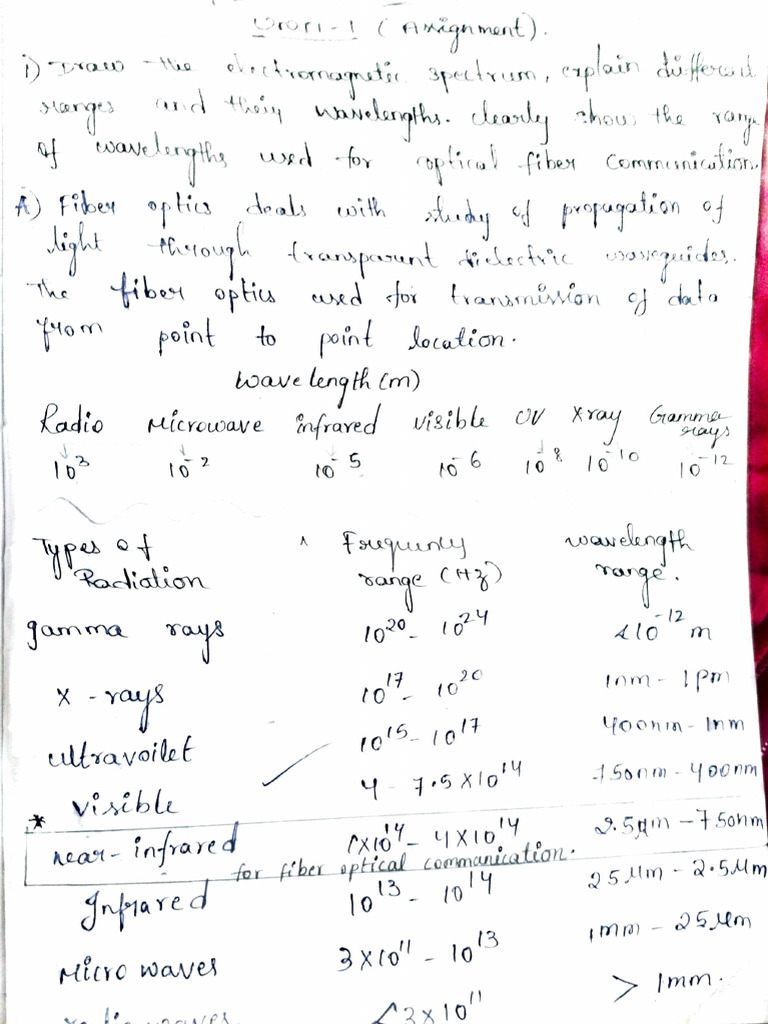 Unit-1 (Assignment).
1) Draw the electromagnetic spectrum, explain different
ranges and their wavelengths. clearly show the range
of wavelengths used for optical fiber communication.
A) Fiber optics deals with study of propagation of
light through transparent dielectric waveguides.
The fiber optics used for transmission of data
from point to point location.
Wavelength (m)
Radio Microwave infrared visible UV X ray Gamma rays
10³ 10⁻² 10⁻⁵ 10⁻⁶ 10⁻⁸ 10⁻¹⁰ 10⁻¹²
Types of Radiation Frequency range (Hz) wavelength range.
gamma rays 10²⁰ - 10²⁴ <10⁻¹² m
x - rays 10¹⁷ - 10²⁰ 1nm - 1pm
ultravoilet 10¹⁵ - 10¹⁷ 400nm - 1nm
visible 4 - 7.5 x 10¹⁴ 750nm - 400nm
* near - infrared 1x10¹⁴ - 4x10¹⁴ 2.5μm - 750nm
for fiber optical communication.
Infrared 10¹³ - 10¹⁴ 25μm - 2.5μm
Micro waves 3x10¹¹ - 10¹³ 1mm - 25μm
radio waves <3x10¹¹ > 1mm.